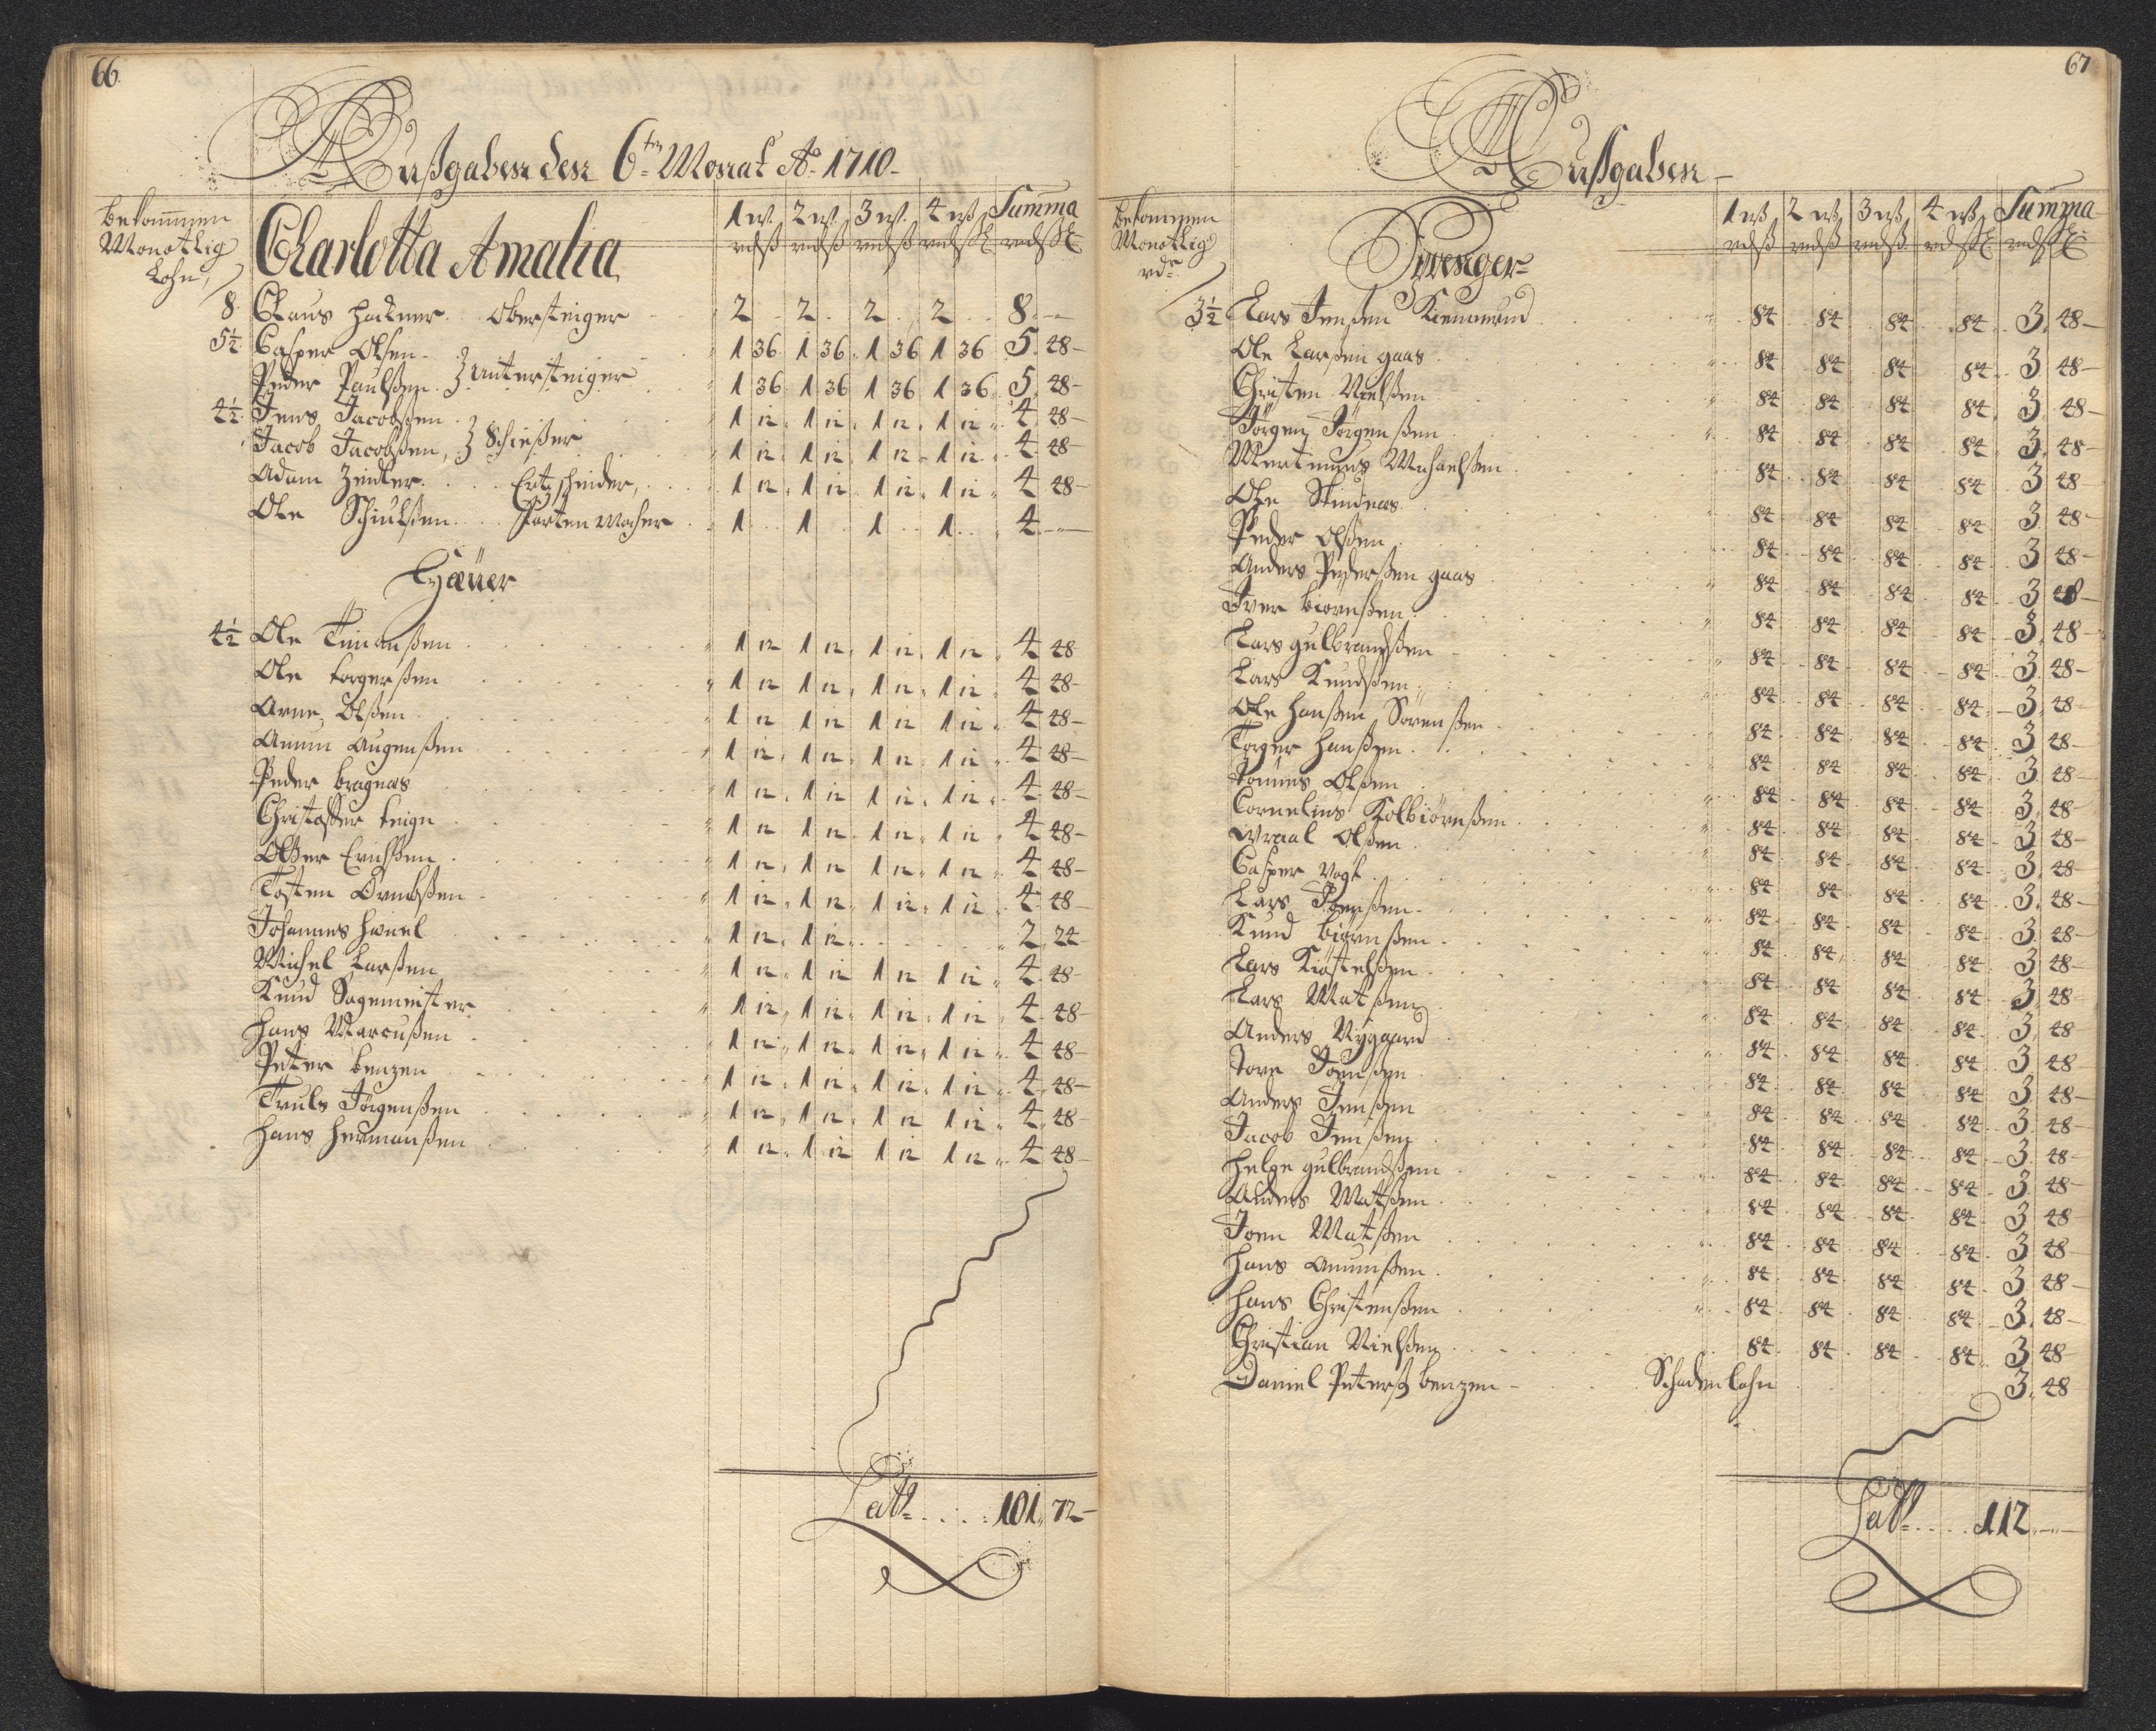 66.
Außgaben den 6ten Monat Ao 1710
bekommen
Monatlig
Lohn,
Charlotta Amalia
1 w. 2 w. 3 w. 4 wß Summa
rdß rdß rdß rdßſ rdßſ
8. Claus Hackner. Obersteiger 2 2. 2. 2 8.--
5½. Casper Olsen. 1 36. 1 36. 1 36 1 36 5. 48-
Peder Paulßen. } untersteiger 1 36. 1 36 1 36 1 36. 5. 48-
4½. Jens Jacobßen 1 12. 1 12. 1 12. 1 12 4. 48-
Jacob Jacobßen, } Schießer 1 12. 1 12. 1 12 1 12. 4 48
Adam Zeidler. Ertzscheider, 1 12. 1 12. 1 12. 1 12 4 48-
Ole Schiulßen. Karten Macher 1 1 1 1 4.--
Häuer
4½ Ole Timanßen 1 12 1 12. 1 12. 1 12 4 48
Ole torgerßen 1 12 1 12. 1 12. 1 12 4 48-
Arne Olßen 1 12 1 12 1 12 1 12. 4. 48-
Amun Augenßen 1 12. 1 12. 1 12 1 12 4 48-
Peder bragnas 1 12. 1 12 1 12. 1 12. 4. 48-
Christoffer teign 1 12 1 12. 1 12. 1 12 4 48-
Olßer Erichßen 1 12. 1 12 1 12. 1 12 4 48-
Tosten Örnbßen 1 12. 1 12. 1 12. 1 12 4. 48
Johannes Hwiel 1 12. 1 12. 2. 24
Michel Larßen 1 12. 1 12 1 12 1 12 4. 48
Knud Sagemeister 1 12. 1 12. 1 12. 1 12 4. 48-
Hans Marcußen 1 12. 1 12. 1 12. 1 12 4. 48-
Peter benzen 1 12. 1 12. 1 12. 1 12 4. 48-
Truls Jörgenßen 1 12. 1 12. 1 12 1 12 4. 48
Hans Hermanßen 1 12. 1 12 1 12 1 12. 4 48
Latt 101. 72-
67
Außgaben
bekommen
Monatlig
rdr
Zwenger
1 wß 2 wß 3 wß 4 wß Summa
rdß rdß rdß rdßſ rdßſ
3½ Lars Jenßen 84 84 84 84. 3. 48-
Ole Larßen gaas 84 84 84 84. 3 48-
Christen Nielßen 84 84 84 84. 3. 48-
Jörgen Jörgenßen 84 84 84 84. 3. 48-
Mertinus Michaelßen 84 84 84 84 3 48
Ole Stindnas 84 84 84 84. 3. 48-
Peder Olßen 84 84 84 84. 3 48-
Anders Pederßen gaas 84 84 84 84. 3 48-
Iver biörnßen 84 84 84 84 3. 48-
Lars gulbrandßen 84 84 84 84 3. 48-
Lars Knudßen 84 84 84 84. 3. 48-
Ole Hanßen Sörenßen 84 84 84 84. 3. 48-
Torger Hanßen 84 84 84 84. 3. 48-
Tommes Olßen 84 84 84 84. 3. 48-
Cornelius Kolbiörnßen 84 84 84 84. 3 48-
Wraal Olßen 84 84 84 84. 3. 48-
Casper Vogt 84 84 84 84. 3. 48-
Lars Iverßen 84 84 84 84. 3. 48-
Knud biörnßen 84 84. 84 84. 3 48-
Lars Kiöstelßen 84 84 84 84. 3. 48
Lars Matßen 84 84 84 84. 3. 48
Anders Nygaard 84 84 84 84 3. 48
Tore Joenßen 84 84 84 84. 3. 48-
Anders Jenßen 84 84 84 84. 3. 48-
Jacob Jenßen 84 84 84 84. 3. 48-
Helge gulbrandßen 84 84 84 84. 3. 48-
Anders Matßen 84 84 84 84. 3 48
Joen Matßen 84 84 84 84. 3 48-
Hans Amunßen 84 84 84 84. 3 48-
Hans Christenßen 84 84 84 84. 3. 48-
Christian Nielßen 84 84 84 84. 3 48
Daniel Peterß benzen - Schadenlohn 3. 48
Latt 112.--